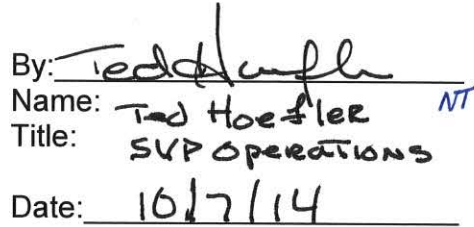 By: Ted Hoefler
Name: Ted Hoefler NT
Title: SVP Operations
Date: 10/7/14